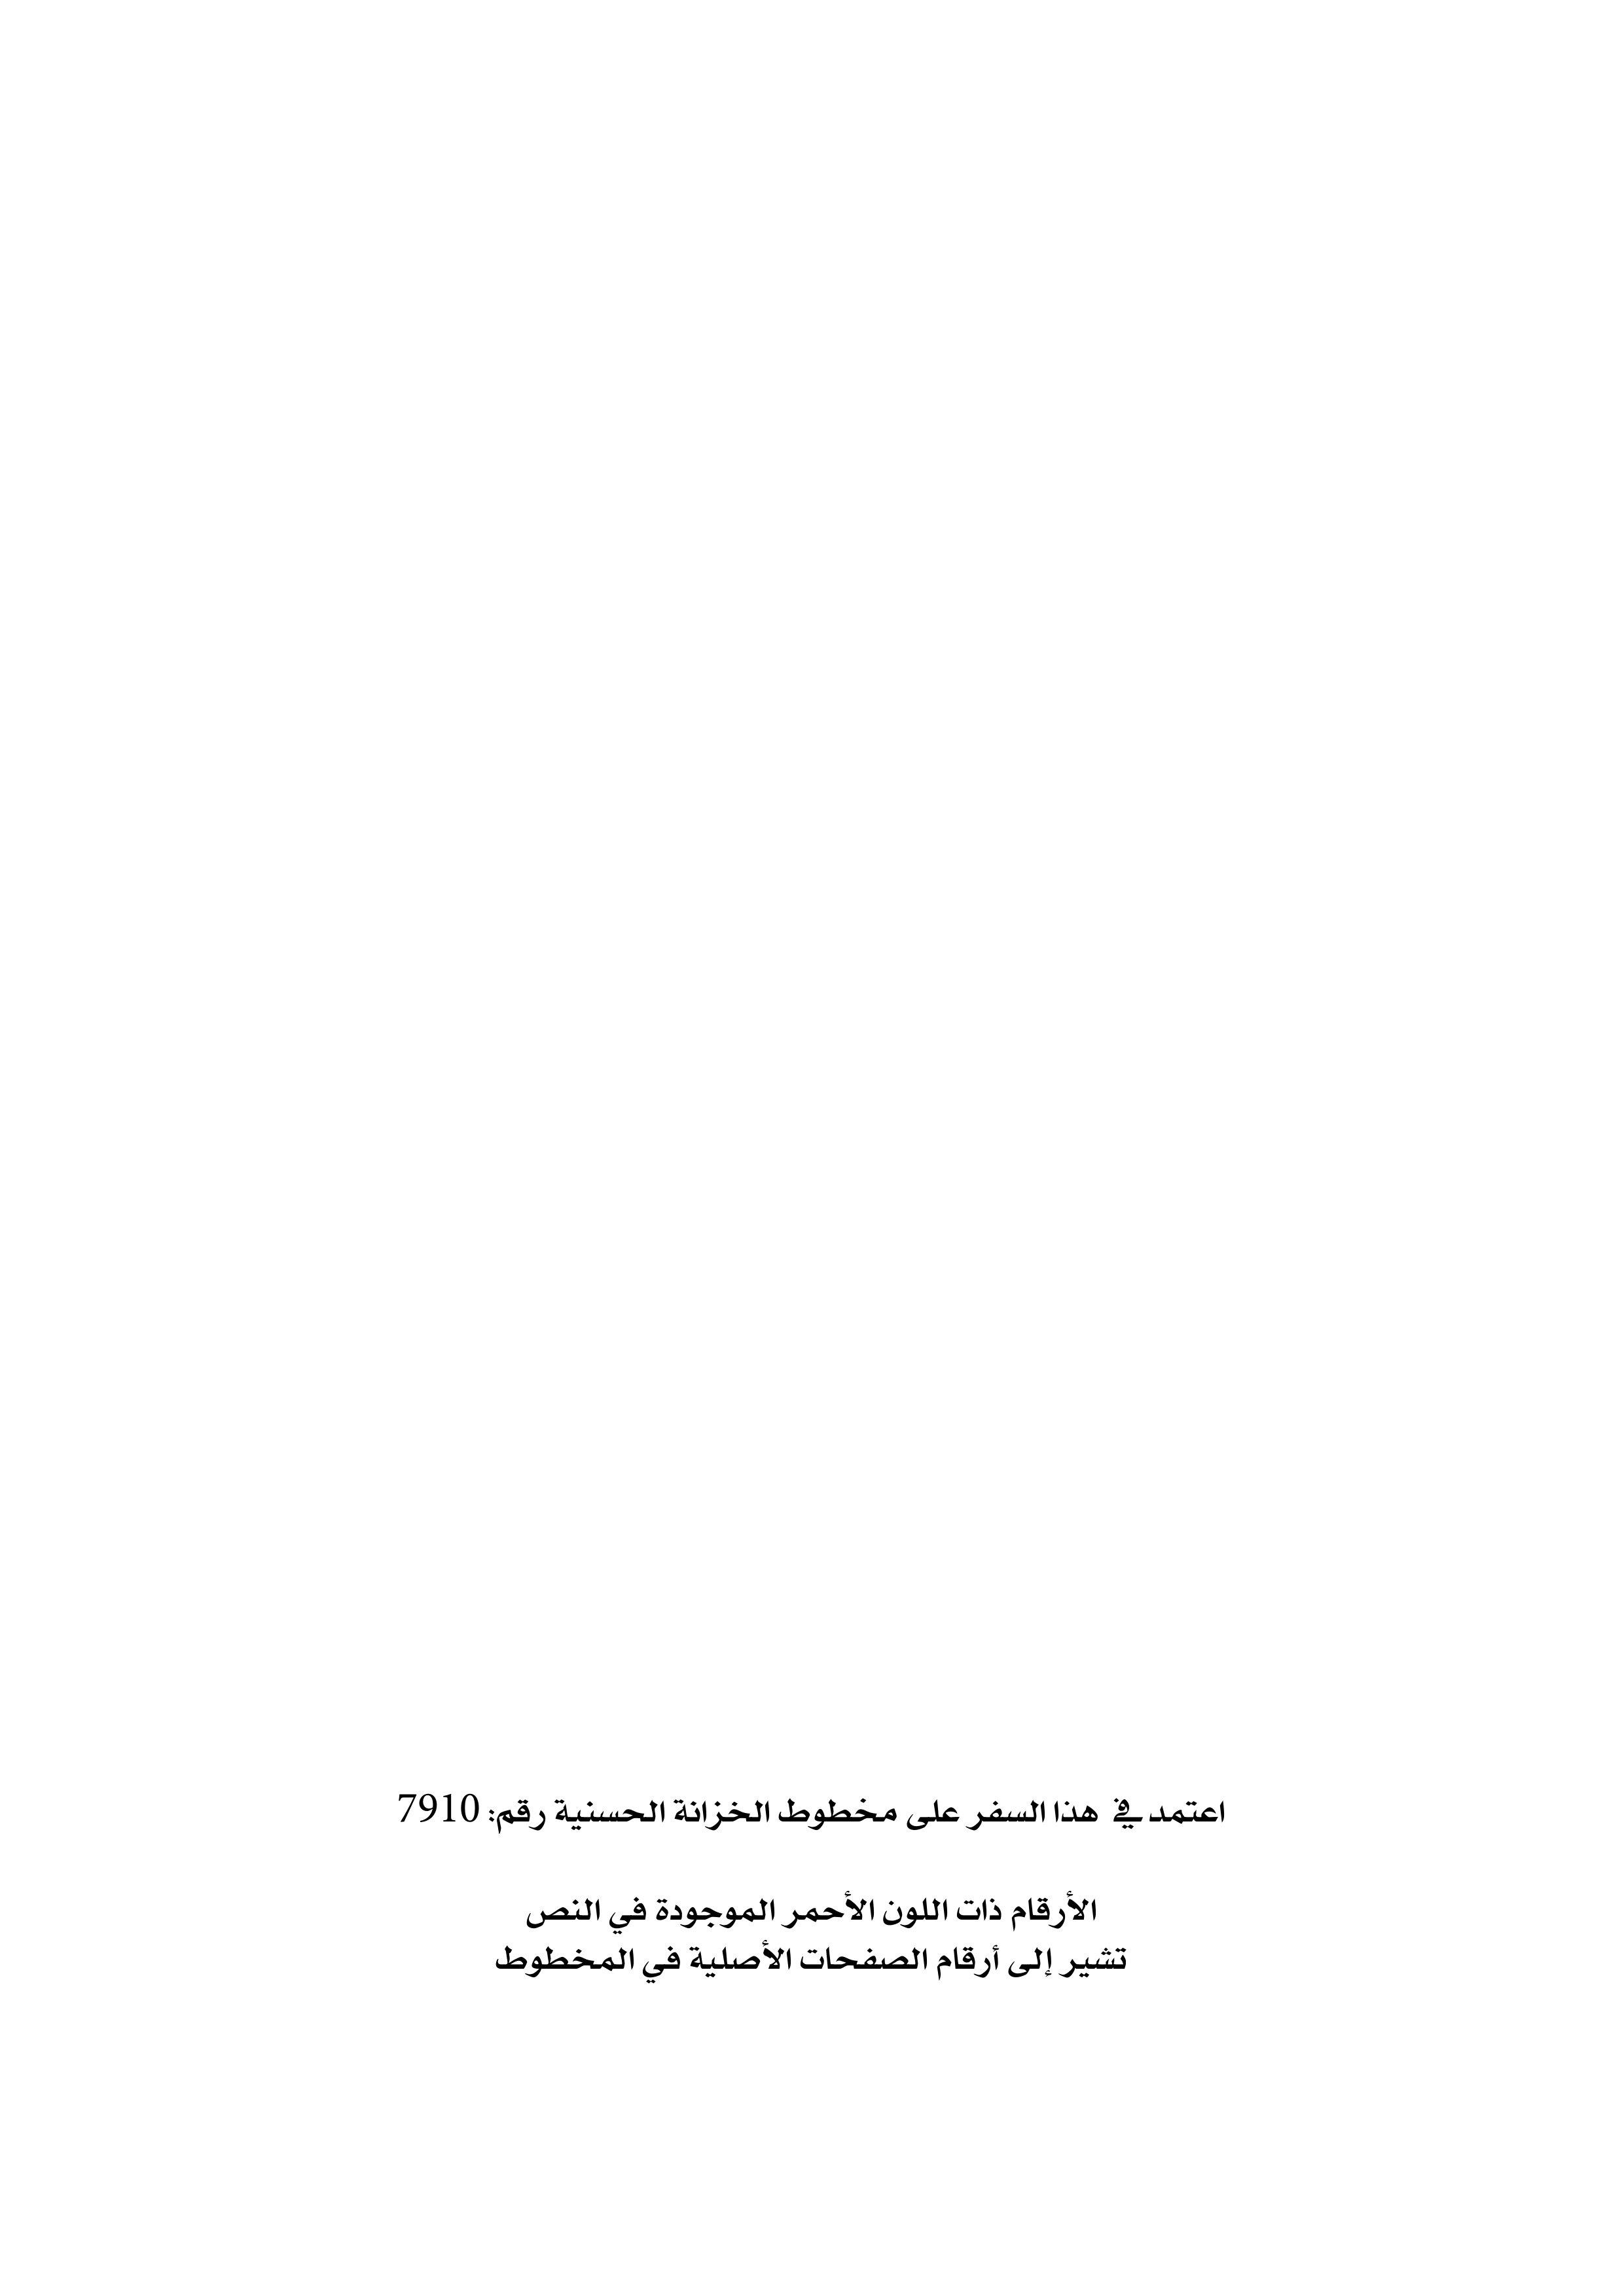 اعتمد في هذا السفر على مخطوط الخزانة الحسنية رقم: 7910
الأرقام ذات اللون الأحمر الموجودة في النص
تشير إلى أرقام الصفحات الأصلية في المخطوط